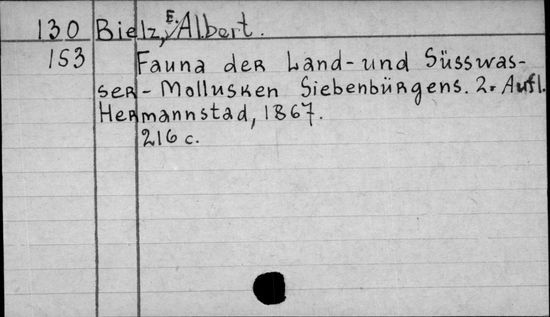 130 Bielz, E. Albert.
153 Fauna der Land- und Süsswas-
ser - Mollusken Siebenbürgens. 2. Aufl.
Hermannstad, 1867.
216 c.